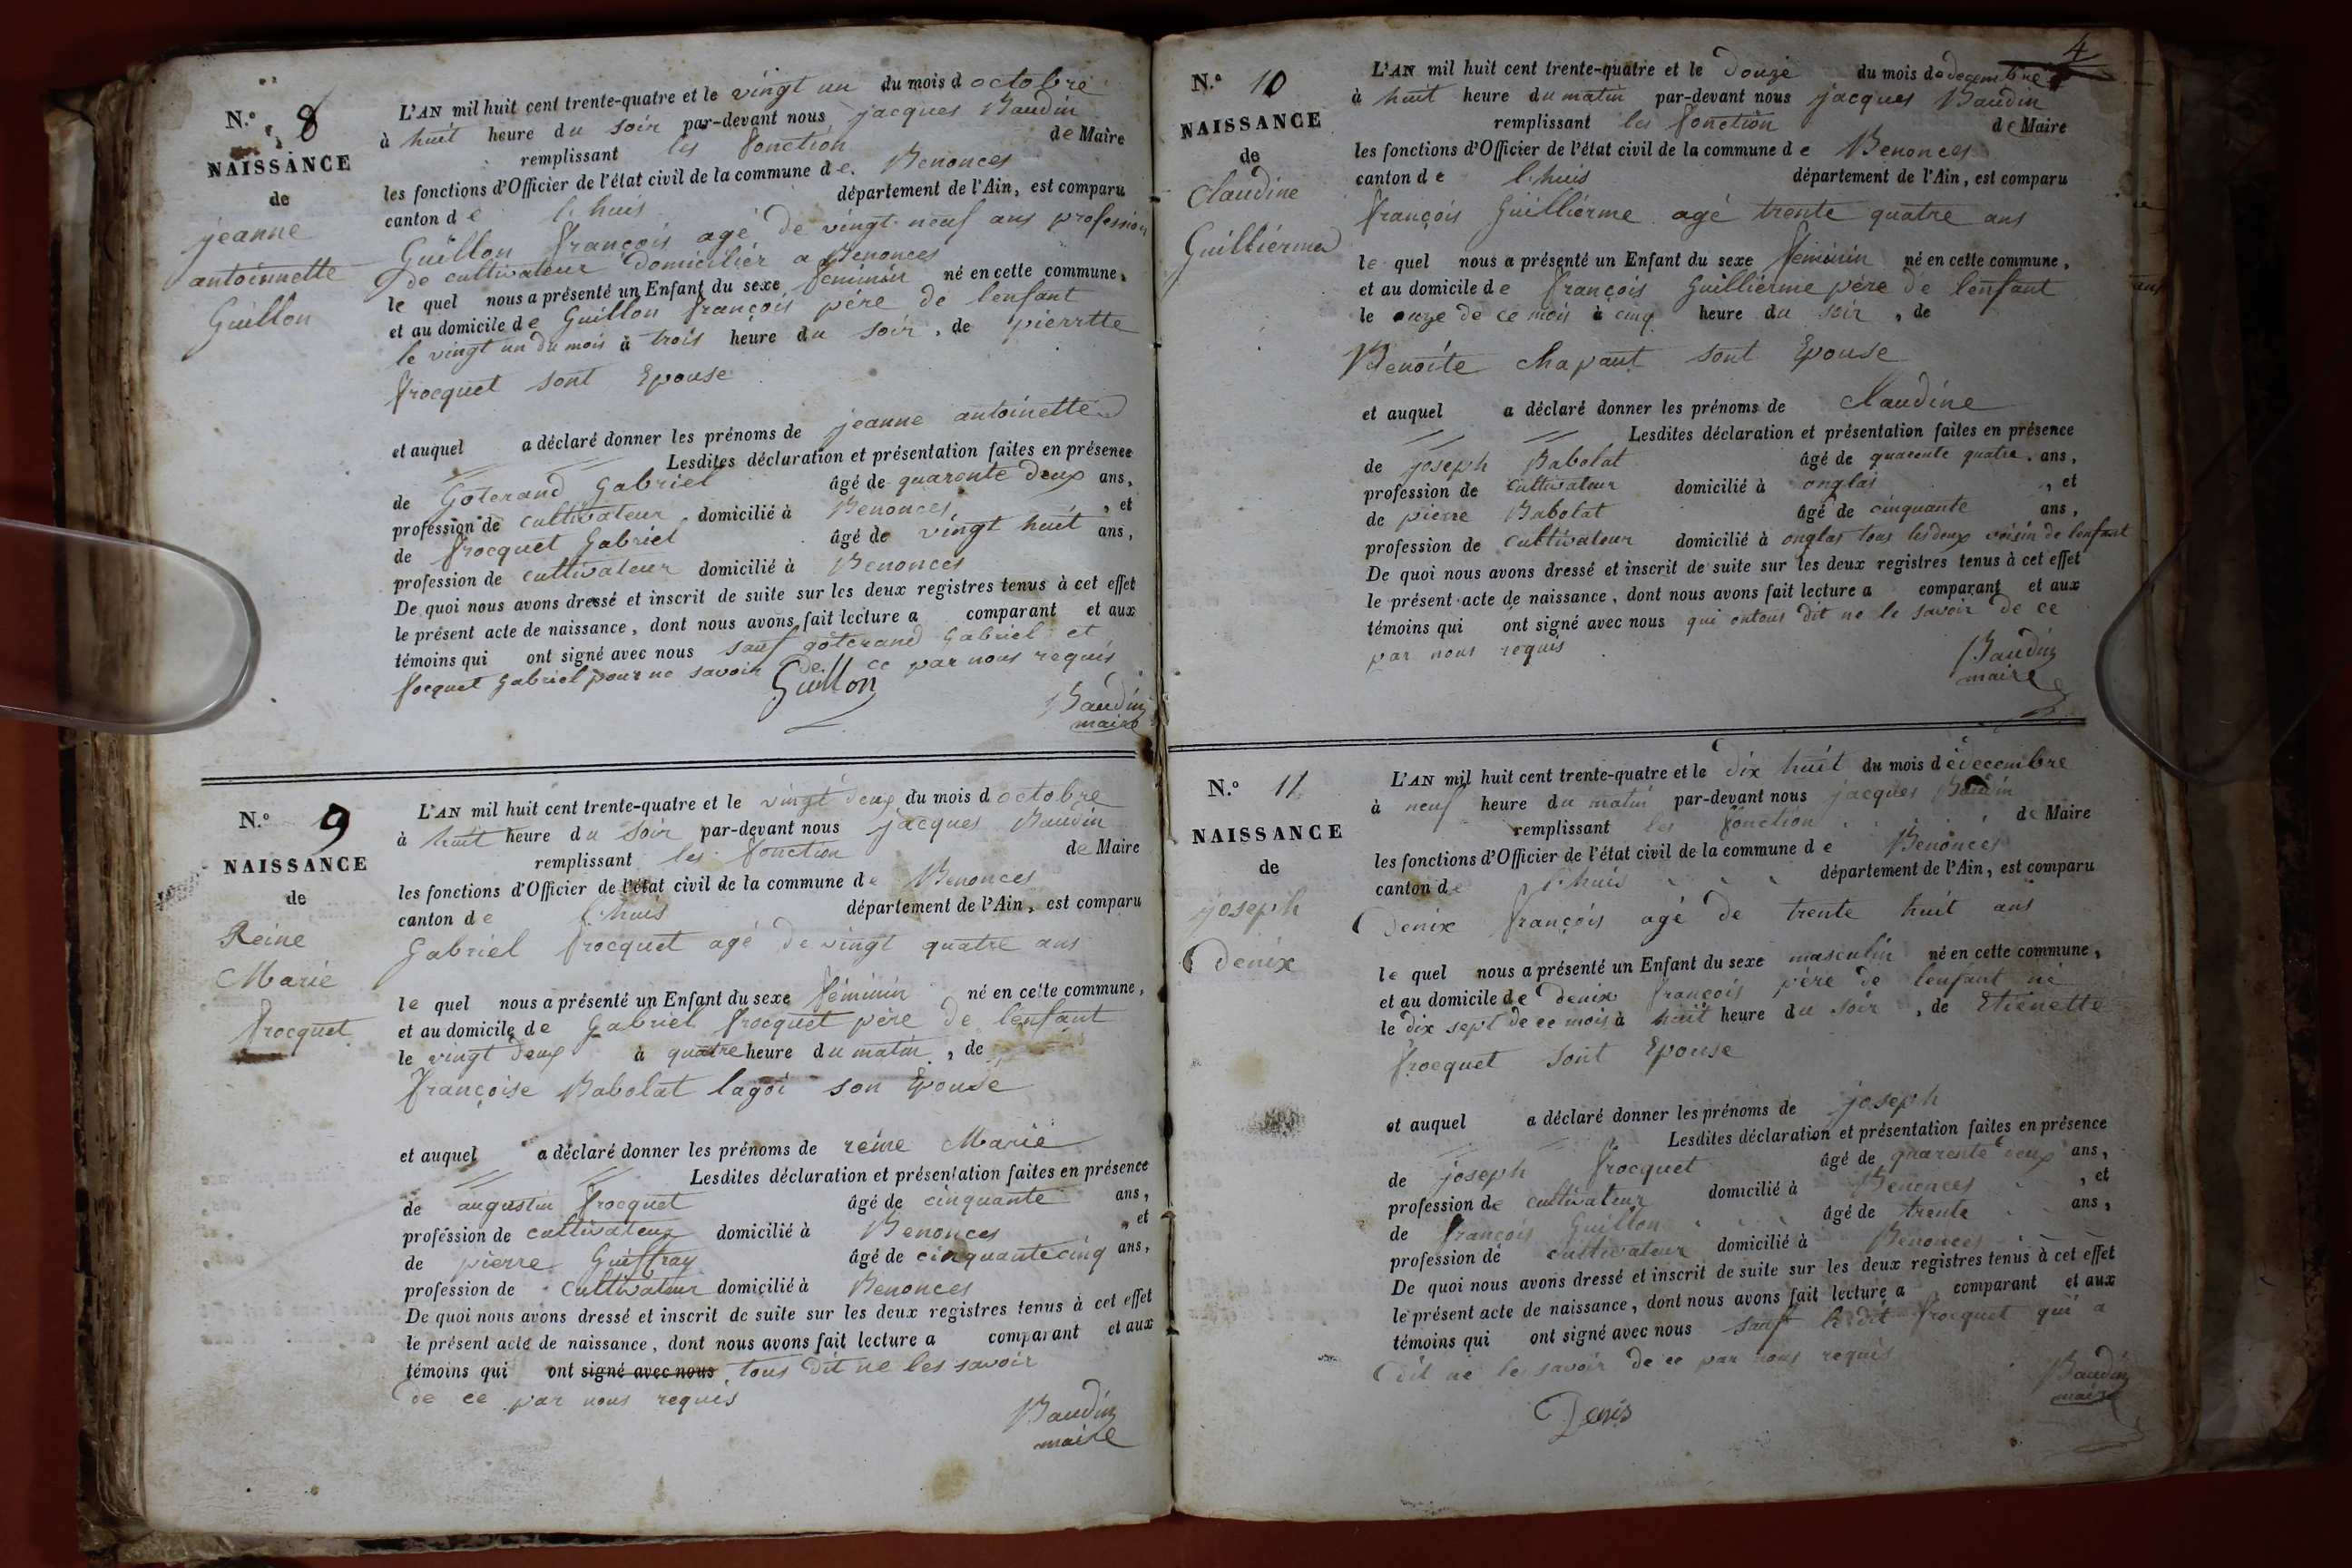 N.º 8
NAISSANCE
de
jeanne
antoinnette
Guillon
L'AN mil huit cent trente-quatre et le vingt un du mois d octobre
à huit heure du soir par-devant nous jacques Baudin
remplissant les fonction de Maire
les fonctions d'Officier de l'état civil de la commune de Benonces
canton de l'huis département de l'Ain, est comparu
Guillon françois agé de vingt neuf ans profession
de cultivateur domicilier a Benonces
le quel nous a présenté un Enfant du sexe feminin né en cette commune,
et au domicile de Guillon françois pére de lenfant
le vingt un du mois à trois heure du soir, de pierrtte
frocquet sont Epouse
et auquel a déclaré donner les prénoms de jeanne antoinette
Lesdites déclaration et présentation faites en présence
de Goterand Gabriel âgé de quarente deux ans,
profession de cultivateur domicilié à Benonces, et
de frocquet Gabriel âgé de vingt huit ans,
profession de cultivateur domicilié à Benonces
De quoi nous avons dressé et inscrit de suite sur les deux registres tenus à cet effet
le présent acte de naissance, dont nous avons fait lecture a comparant et aux
témoins qui ont signé avec nous sauf goterand Gabriel et
focquet Gabriel pour ne savoir de ce par nous requis
Guillon
Baudin
maire
N.º 9
NAISSANCE
de
Reine
Marie
frocquet
L'AN mil huit cent trente-quatre et le vingt deux du mois d octobre
à huit heure du soir par-devant nous jacques Baudin
remplissant les fonction de Maire
les fonctions d'Officier de l'état civil de la commune de Benonces
canton de l'huis département de l'Ain, est comparu
Gabriel frocquet agé de vingt quatre ans
le quel nous a présenté un Enfant du sexe féminin né en cette commune,
et au domicile de Gabriel frocquet pére de lenfant
le vingt deux à quatre heure du matin, de
françoise Babolat lagoi son Epouse
et auquel a déclaré donner les prénoms de reine Marie
Lesdites déclaration et présentation faites en présence
de augustin frocquet âgé de cinquante ans,
profession de cultivateur domicilié à Benonces, et
de pierre Guiffray âgé de cinquante cinq ans,
profession de Cultivateur domicilié à Benonces
De quoi nous avons dressé et inscrit de suite sur les deux registres tenus à cet effet
le présent acte de naissance, dont nous avons fait lecture a comparant et aux
témoins qui ont signé avec nous tous dit ne les savoir
de ce par nous requis
Baudin
maire
4
N.º 10
NAISSANCE
de
Claudine
Guilliérme
L'AN mil huit cent trente-quatre et le Douze du mois de decembre
à huit heure du matin par-devant nous jacques Baudin
remplissant les fonction de Maire
les fonctions d'Officier de l'état civil de la commune de Benonces
canton de l'huis département de l'Ain, est comparu
françois Guilliérme agé trente quatre ans
le quel nous a présenté un Enfant du sexe féminin né en cette commune,
et au domicile de françois Guilliérme pére de lenfant
le onze de ce mois à cinq heure du soir, de
Benoite chapaut sont Epouse
et auquel a déclaré donner les prénoms de Claudine
Lesdites déclaration et présentation faites en présence
de joseph Babolat âgé de quarente quatre ans,
profession de cultivateur domicilié à onglas, et
de pierre Babolat âgé de cinquante ans,
profession de Cultivateur domicilié à onglas tous les deux voisin de lenfant
De quoi nous avons dressé et inscrit de suite sur les deux registres tenus à cet effet
le présent acte de naissance, dont nous avons fait lecture a comparant et aux
témoins qui ont signé avec nous qui ontous dit ne le savoir de ce
par nous requis
Baudin
maire
N.º 11
NAISSANCE
de
joseph
Denix
L'AN mil huit cent trente-quatre et le dix huit du mois de decembre
à neuf heure du matin par-devant nous jacques Baudin
remplissant les fonction de Maire
les fonctions d'Officier de l'état civil de la commune de Benonces
canton de l'huis département de l'Ain, est comparu
Denix françois agé de trente huit ans
le quel nous a présenté un Enfant du sexe masculin né en cette commune,
et au domicile de denix françois pére de lenfant né
le dix sept de ce mois à huit heure du soir, de Etienette
frocquet sont Epouse
et auquel a déclaré donner les prénoms de joseph
Lesdites déclaration et présentation faites en présence
de joseph frocquet âgé de quarente deux ans,
profession de cultivateur domicilié à Benonces, et
de françois Guillon âgé de trente ans,
profession de cultivateur domicilié à Benonces
De quoi nous avons dressé et inscrit de suite sur les deux registres tenus à cet effet
le présent acte de naissance, dont nous avons fait lecture a comparant et aux
témoins qui ont signé avec nous sauf le dit frocquet qui a
dit ne le savoir de ce par nous requis
Denis
Baudin
maire